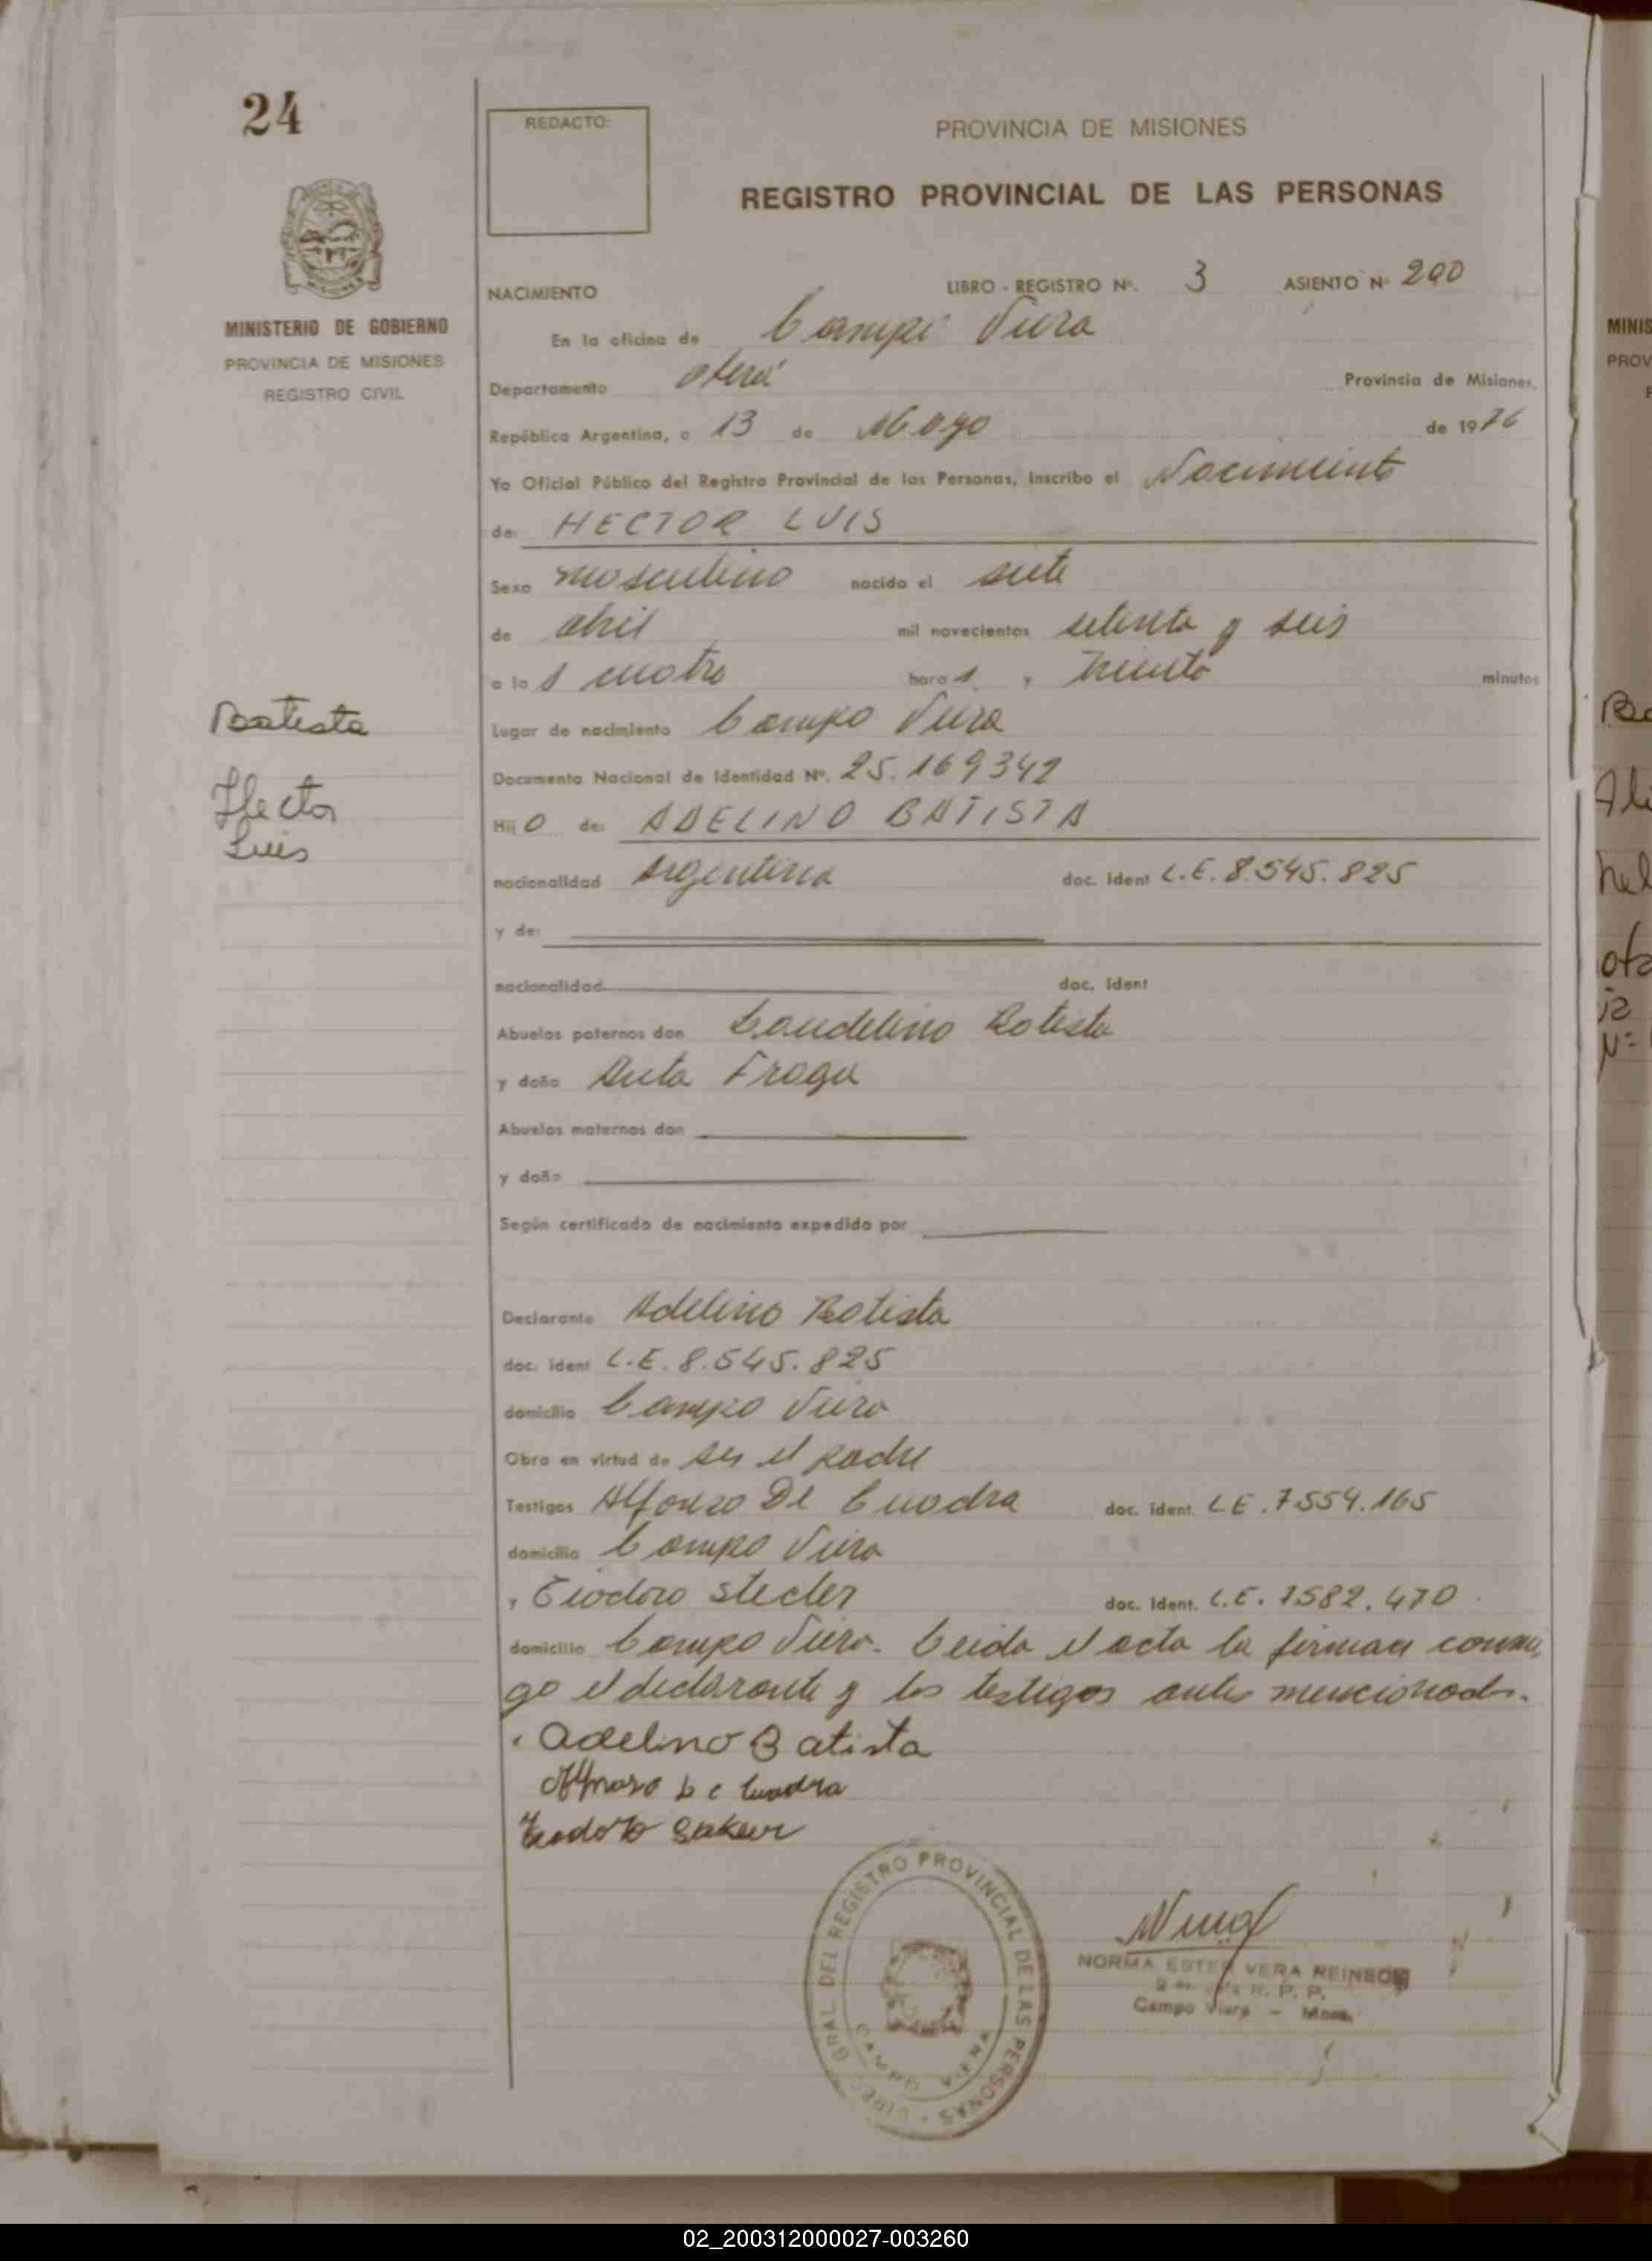 24
REDACTO:
PROVINCIA DE MISIONES
REGISTRO PROVINCIAL DE LAS PERSONAS
NACIMIENTO
LIBRO - REGISTRO Nº. 3 ASIENTO Nº 200
MINISTERIO DE GOBIERNO
PROVINCIA DE MISIONES
REGISTRO CIVIL
En la oficina de Campo Viera
Departamento Oberá Provincia de Misiones,
República Argentina, a 13 de Mayo de 1976
Yo Oficial Público del Registro Provincial de las Personas, Inscribo el Nacimiento
de: HECTOR LUIS
Sexo masculino nacido el siete
de abril mil novecientos setenta y seis
a las cuatro horas y treinta minutos
Batista
Lugar de nacimiento Campo Viera
Documento Nacional de Identidad Nº. 25.169342
Hector
Luis
Hijo de: ADELINO BATISTA
nacionalidad Argentina doc. Ident L.E. 8.545.825
y de:
nacionalidad doc. Ident
Abuelos paternos don Laudelino Batista
y doña Anta Fraga
Abuelos maternos don
y doña
Según certificado de nacimiento expedido por
Declarante Adelino Batista
doc. Ident L.E. 8.545.825
domicilio Campo Viera
Obra en virtud de ser el padre
Testigos Alfonzo De Cuadra doc. ident. L.E. 7.554.165
domicilio Campo Viera
y Teodoro Stecler doc. Ident. L.E. 7582.470
domicilio Campo Viera. Leida el acta la firman conmi
go el declarante y los testigos antes mencionados.
Adelino Batista
de Cuadra
Teodoro
GRAL. DEL REGISTRO PROVINCIAL DE LAS PERSONAS
CAMPO VIERA
NORMA ESTER VERA REINBOLD
R. P. P.
Campo Viera - Mnes.
MINIS
PROV
02_200312000027-003260